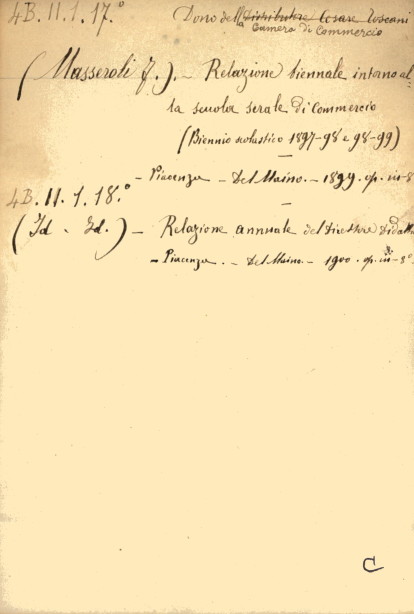 4B. II. 1. 17.°
Dono della Distributore Cesare Toscani
Camera di Commercio
(Masseroli F.). - Relazione biennale intorno al-
la scuola serale di Commercio
(Biennio scolastico 1897-98 e 98-99)
- Piacenza - Del Maino. - 1899. op. in-8
4B. II. 1. 18.°
(Id. - Id.) - Relazione annuale del Direttore Didatti
- Piacenza. - Del Maino. - 1900. op. in-8°
C